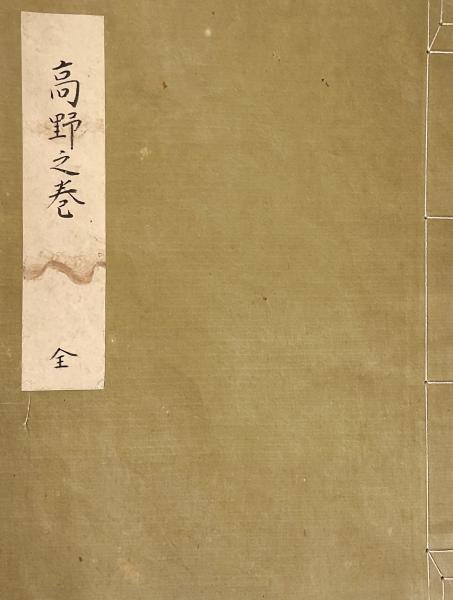 高野之巻
全